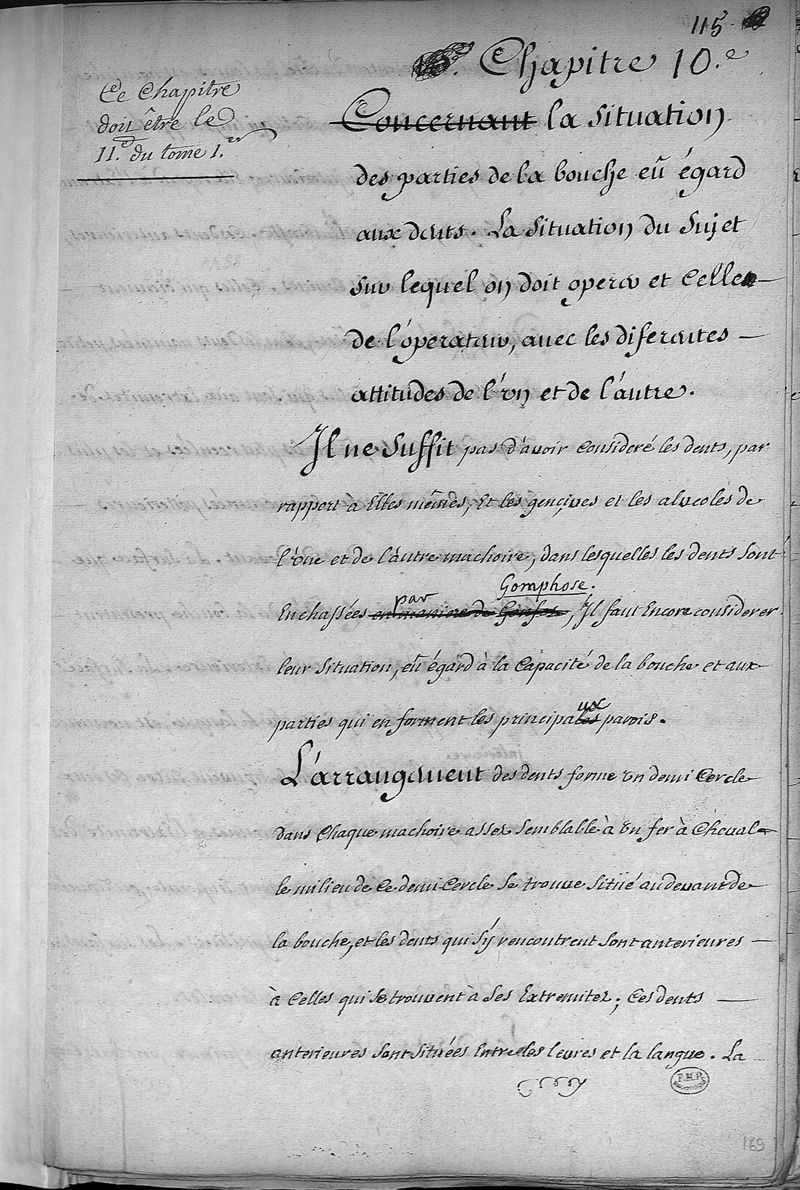 115
Chapitre 10.e
Ce Chapitre
doit être le
11.e du tome 1.er
Concernant la situation
des parties de la bouche eû égard
aux dents. La situation du sujet
sur lequel on doit operer et celle
de l'óperateur, avec les diferentes
attitudes de l'un et de l'autre.
Il ne suffit pas d'avoir consideré les dents, par
rapport à Elles mêmes, Et les gençives et les alveoles de
l'une et de l'autre machoire, dans lesquelles les dents sont
par Gomphose.
Enchassées en maniere de Gonfose, Il faut Encore considerer
leur situation, eû égard à la Capacité de la bouche et aux
ux
parties qui en forment les principales parois.
L'arrangement des dents forme un demi Cercle
dans Chaque machoire assez semblable à un fer à Cheval
le milieu de Ce demi-Cercle se trouve situé au devant de
la bouche, et les dents qui s'y rencontrent sont anterieures
à Celles qui se trouvent à ses Extremitez; Ces dents
anterieures sont situées Entre les levres et la langue. La
169